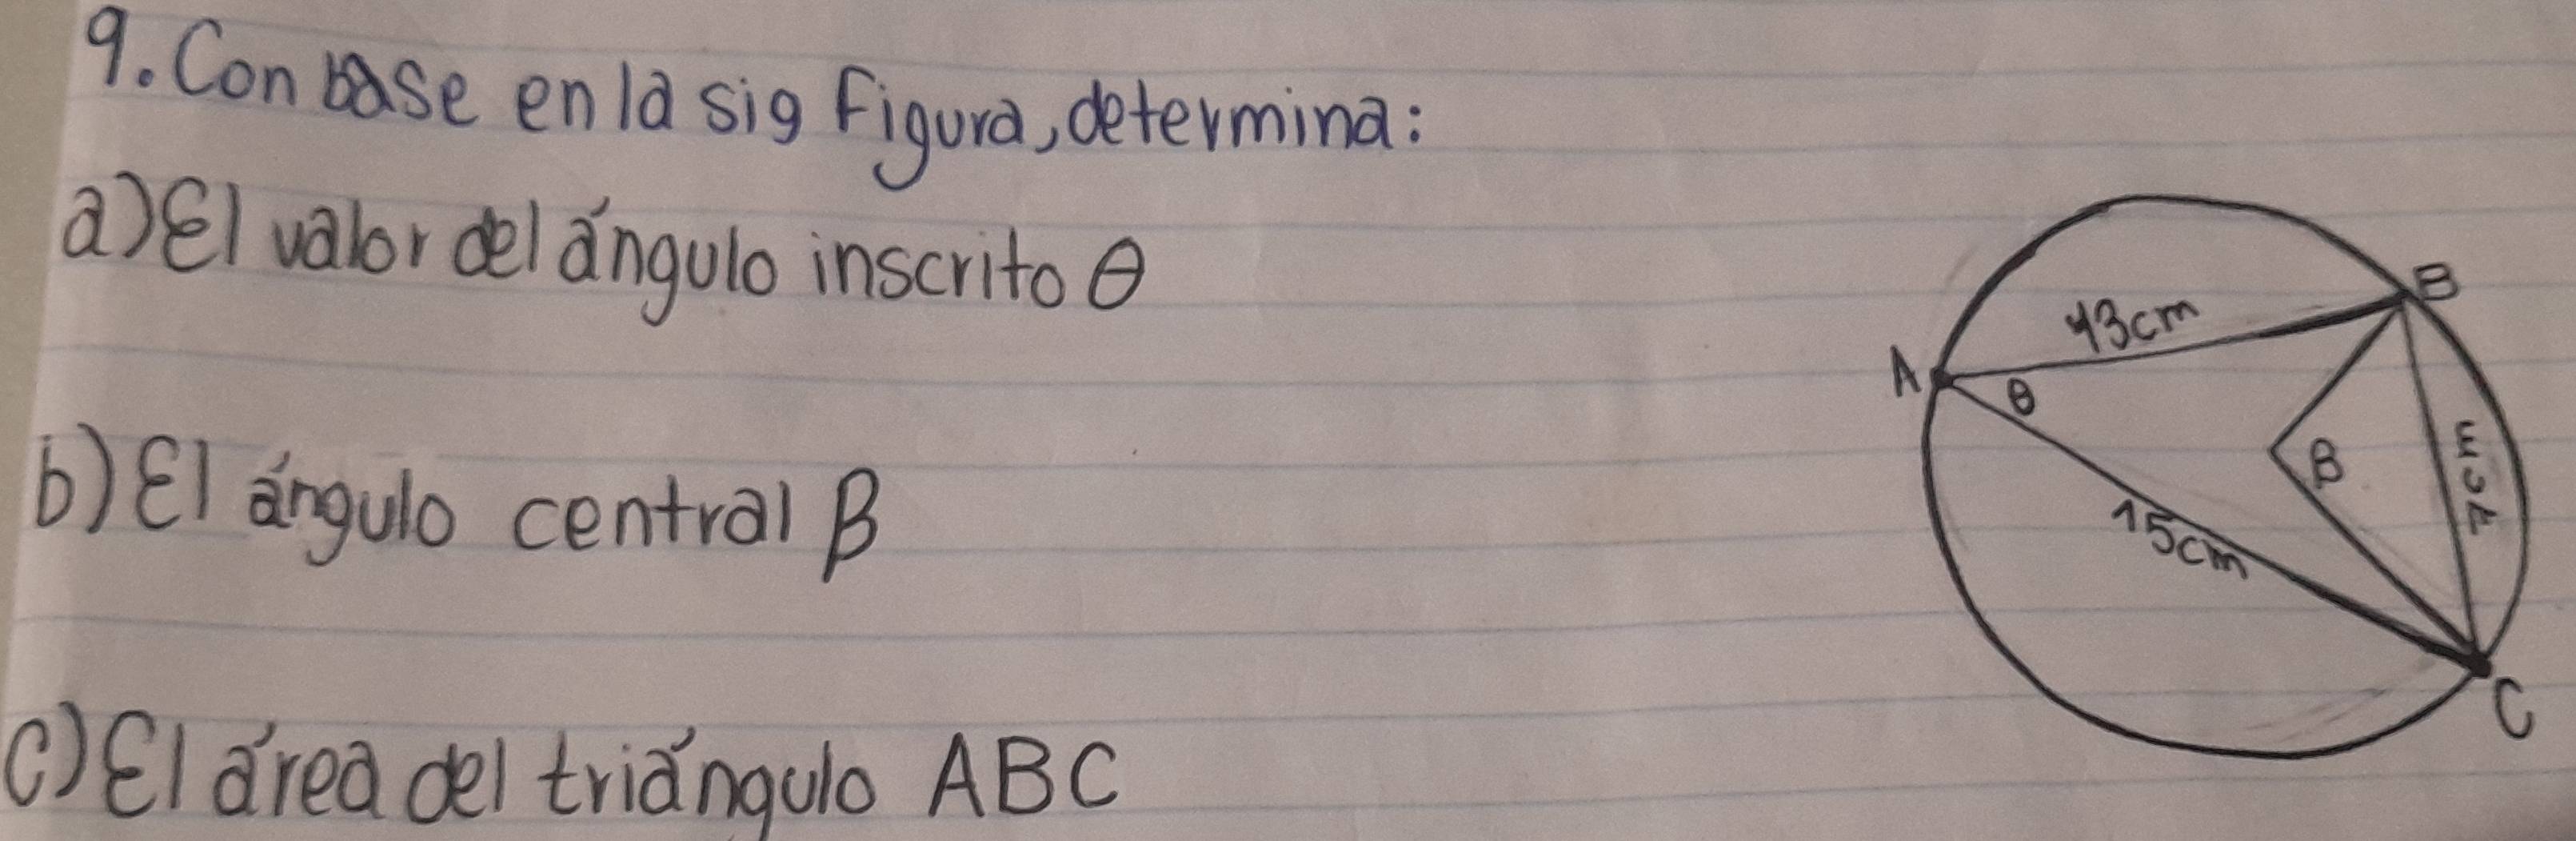 9. Con base en la sig figura, determina:
a) El valor del ángulo inscrito θ
b) El ángulo central β
c) El área del triángulo ABC
B
13cm
A
θ
B
7cm
15cm
C